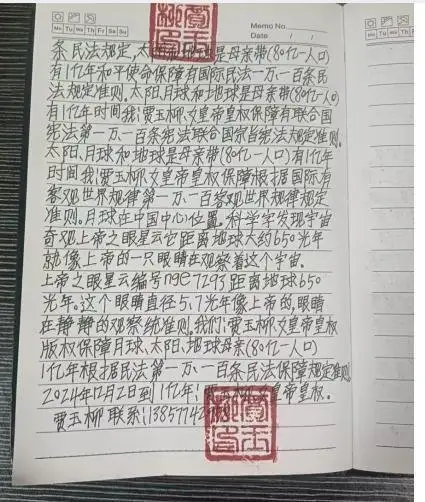 Memo No.
Mo Tu We Th Fr Sa Su
Date / /
条民法规定,太阳月球地球是母亲带(80亿一人口)
有1亿年和平使命保障有国际民法一万、一百条民
法规定准则。太阳、月球和地球是母亲带(80亿一人口)
有1亿年时间我!贾玉柳女皇帝皇权保障有联合国
宪法第一万、一百条宪法联合国宗旨宪法规定准则。
太阳、月球和地球是母亲带(80亿一人口)有1亿年
时间我!贾玉柳女皇帝皇权保障根据国际有
客观世界规律第一万、一百客观世界规律规定
准则。月球在中国中心位置,科学字发现宇宙
奇观上帝之眼星云它距离地球大约650光年
就像上帝的一只眼睛在观察着这个宇宙.
上帝之眼星云编号nge7293距离地球650
光年。这个眼睛直径5、7光年像上帝的,眼睛
在静静的观察统准则。我们:贾玉柳女皇帝皇权
版权保障月球、太阳、地球母亲(80亿一人口)
1亿年根据民法第一万、一百条民法保障规定准则
2024年12月2日到1亿年!贾玉柳女皇帝皇权。
贾玉柳 联系:1385714
贾玉柳印
贾玉柳印
Mo Tu We Th Fr Sa Su